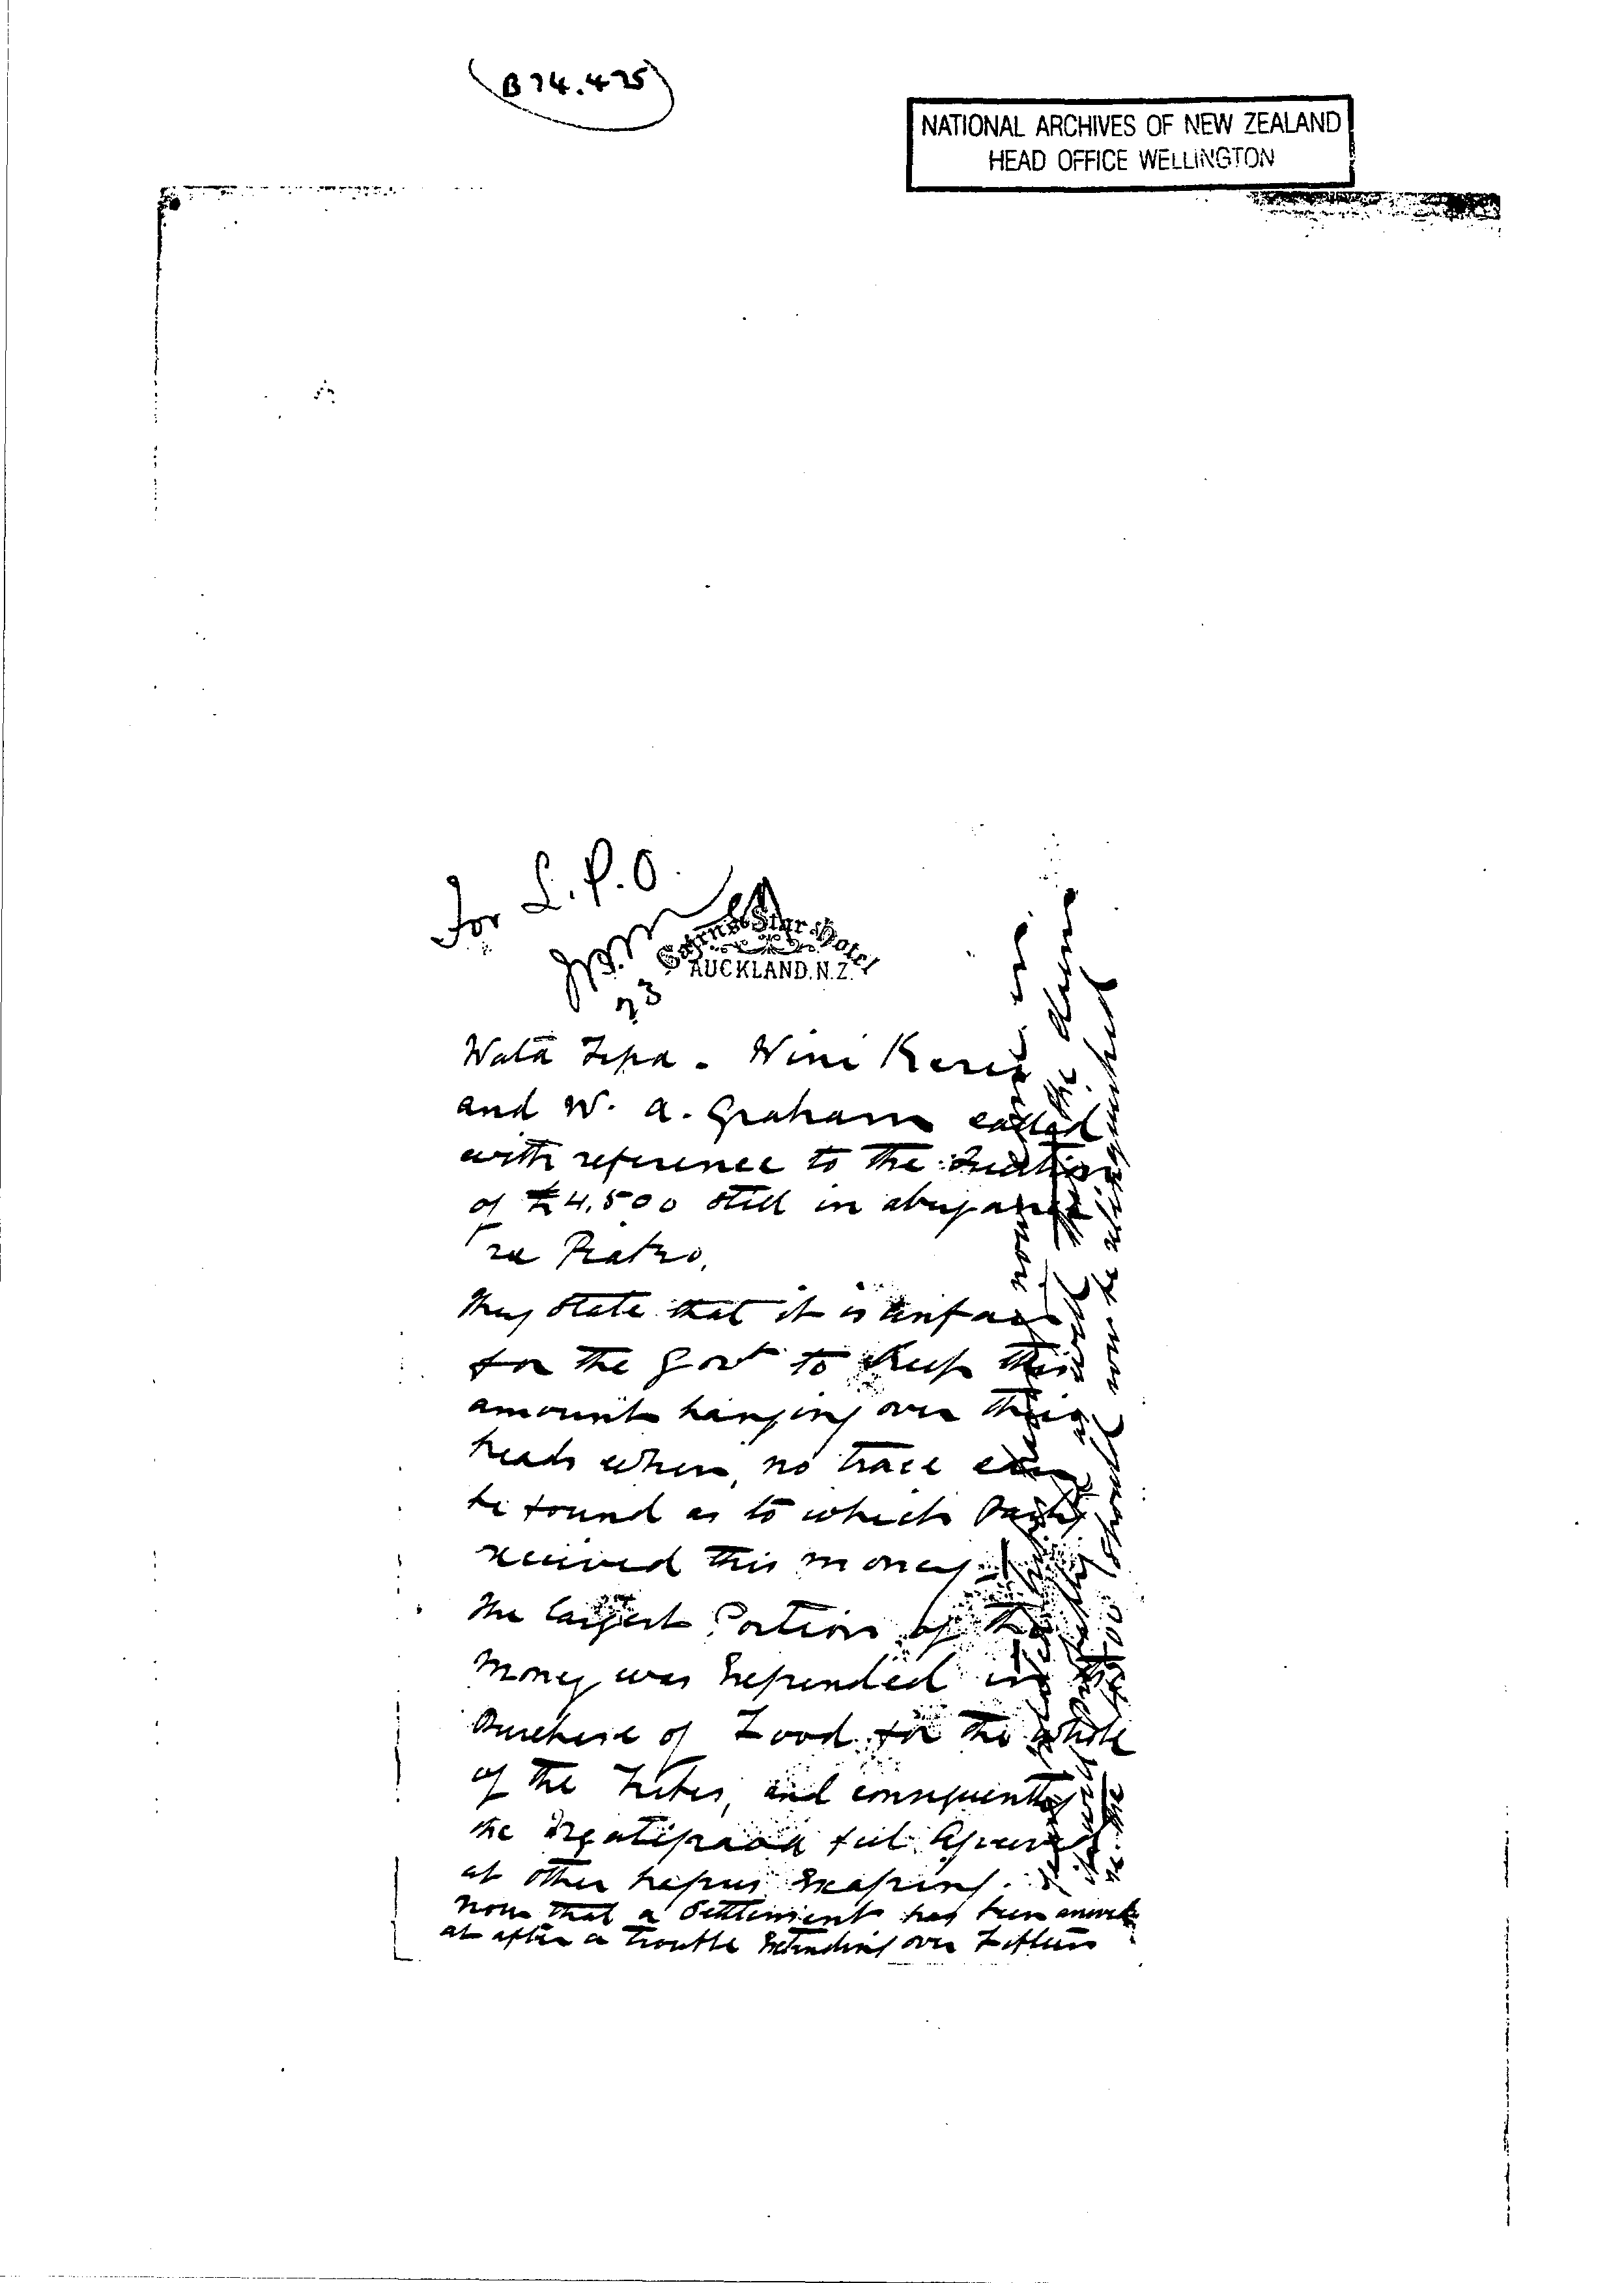 B 74.475
NATIONAL ARCHIVES OF NEW ZEALAND
HEAD OFFICE WELLINGTON
For L.P.O.
Star Hotel
AUCKLAND. N.Z.
23
Wata Tipa - Wini Kerei
and W. A. Graham called
with reference to the Question
of £4,500 still in abeyance
re Piako.
They state that it is unfair
for the Govt to keep this
amount hanging over their
heads when, no trace can
be found as to which Party
received this money -
The largest Portion of the
money was Expended in
Purchase of Food for the whole
of the Tribes, and consequently
the Ngatipaoa feel Agrieved
at other hapus Escaping.
Now that a Settlement has been arrived
at after a trouble Extending over Fifteen
now
the
should now be relinquished